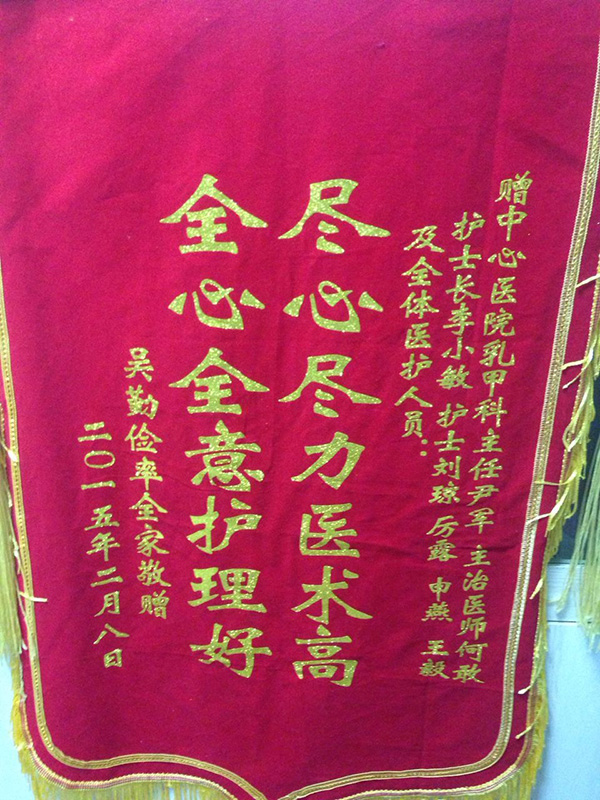 赠中心医院乳甲科主任尹军 主治医师何敢
护士长李小敏 护士刘琼 厉露 申燕 王毅
及全体医护人员:
尽心尽力医术高
全心全意护理好
吴勤俭率全家敬赠
二〇一五年二月八日